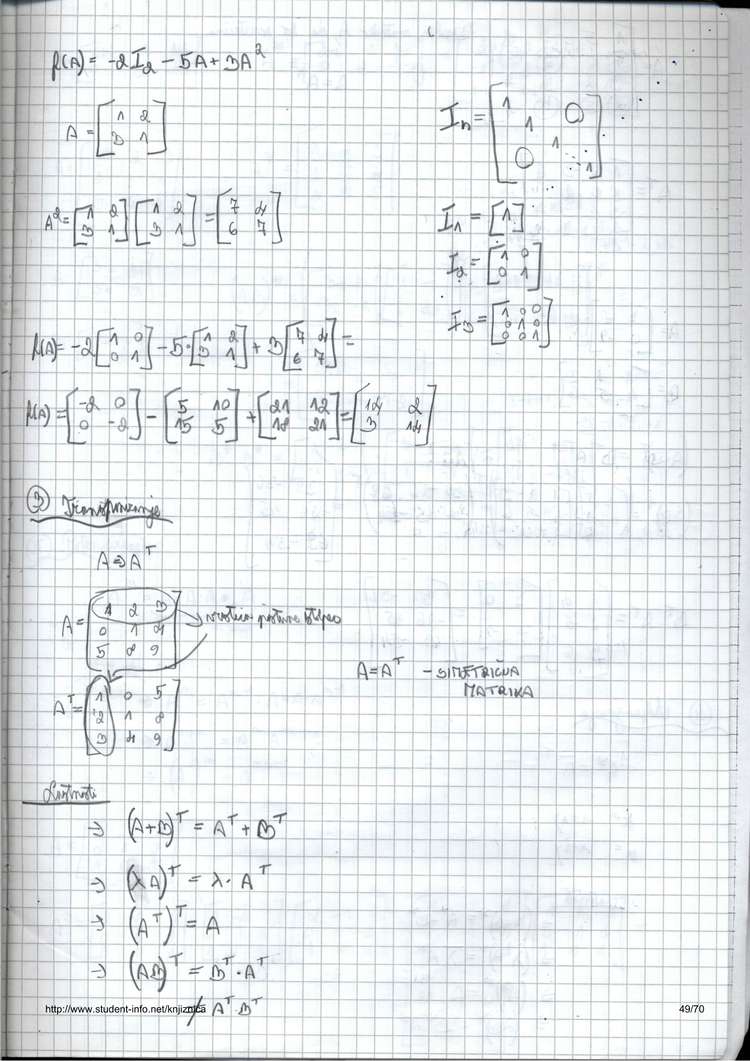 p(A) = -2I₂ - 5A + 3A²
A = [1 2; 3 1]
Iₙ = [1 0; 1; 1; 0 ⋱ 1]
A² = [1 2; 3 1] [1 2; 3 1] = [7 4; 6 7]
I₁ = [1]
I₂ = [1 0; 0 1]
I₃ = [1 0 0; 0 1 0; 0 0 1]
p(A) = -2 [1 0; 0 1] - 5· [1 2; 3 1] + 3 [7 4; 6 7] =
p(A) = [-2 0; 0 -2] - [5 10; 15 5] + [21 12; 18 21] = [14 2; 3 14]
③ Transponiranje
A ⇒ Aᵀ
A = [1 2 3; 0 1 4; 5 8 9] → vrstica postane stolpec
Aᵀ = [1 0 5; 2 1 8; 3 4 9]
A = Aᵀ - SIMETRIČNA
MATRIKA
Lastnosti
⇒ (A+B)ᵀ = Aᵀ + Bᵀ
⇒ (λA)ᵀ = λ · Aᵀ
⇒ (Aᵀ)ᵀ = A
⇒ (AB)ᵀ = Bᵀ · Aᵀ
≠ Aᵀ · Bᵀ
http://www.student-info.net/knjiznica
49/70